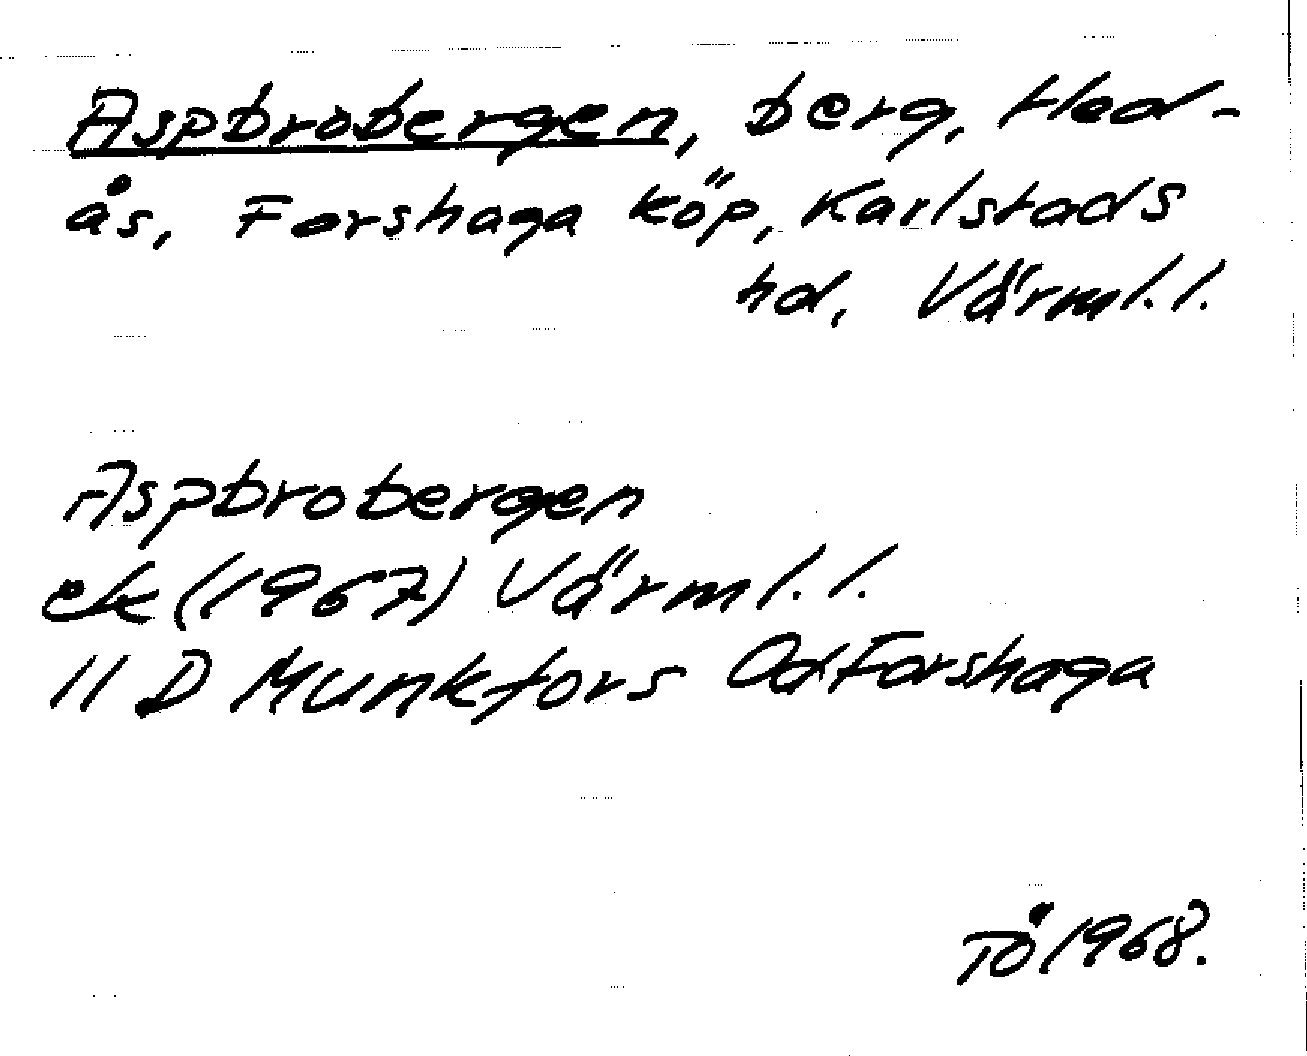 Aspbrobergen, berg, Hed-
ås, Forshaga köp, Karlstads
hd, Värml.l.
Aspbrobergen
ek (1967) Värml.l.
11 D Munkfors Od Forshaga
TÖ 1968.